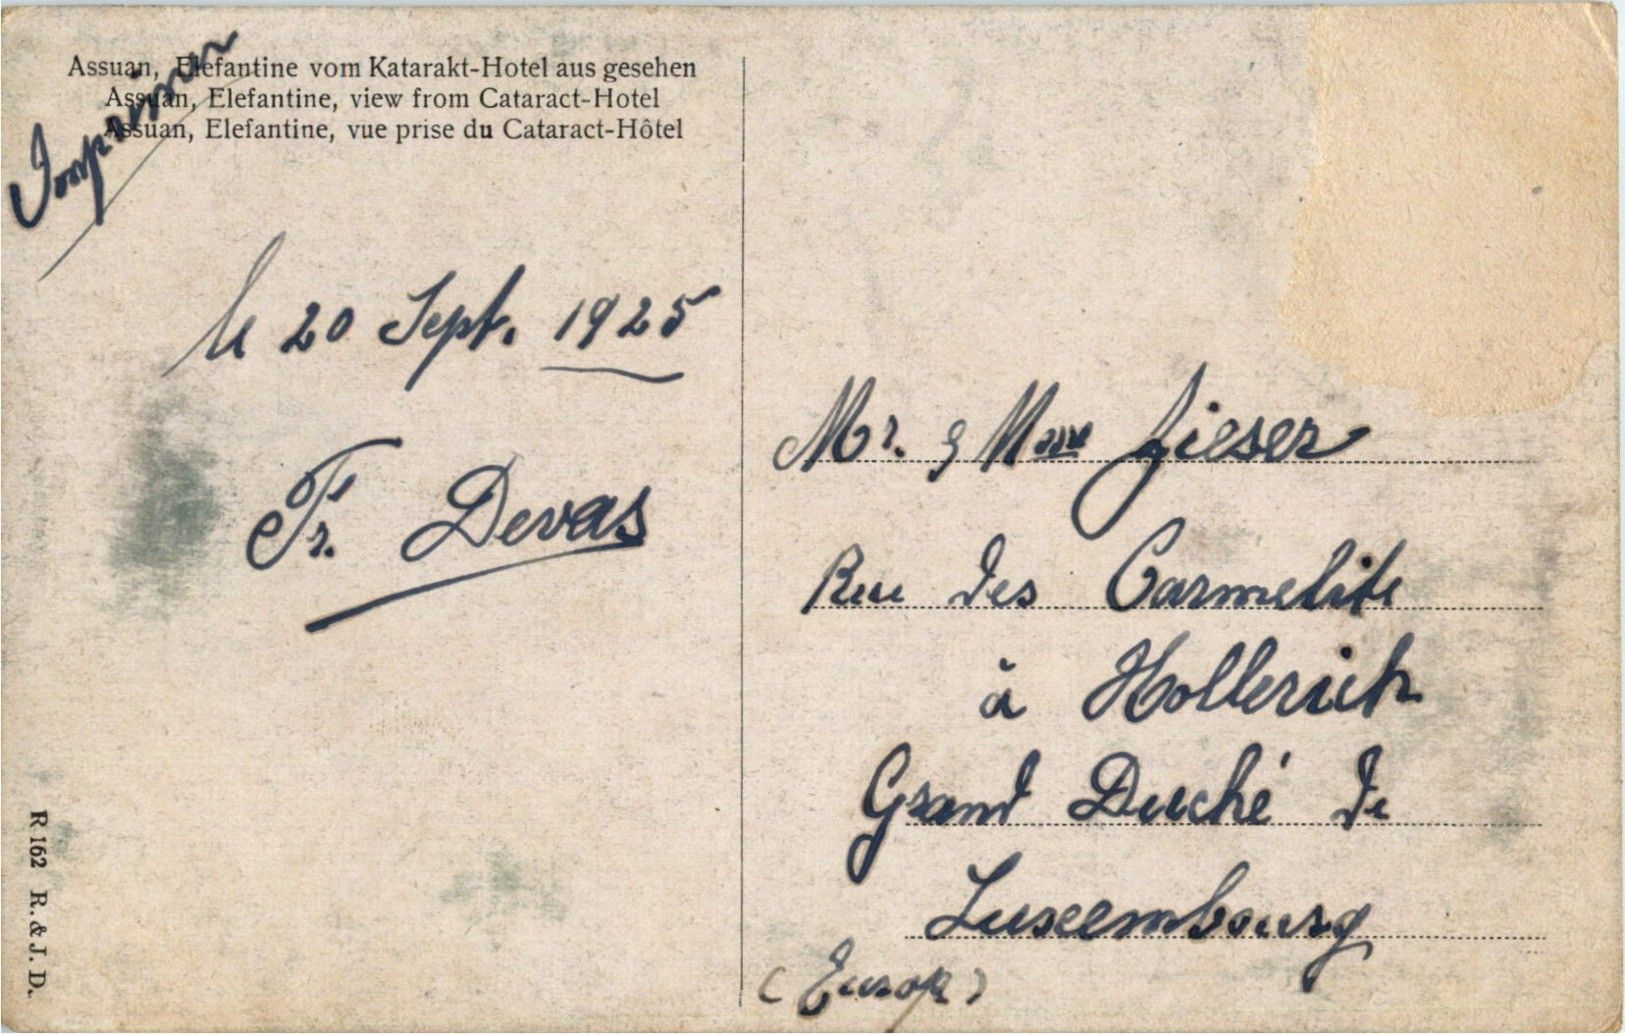 Assuan, Elefantine vom Katarakt-Hotel aus gesehen
Assuan, Elefantine, view from Cataract-Hotel
Assuan, Elefantine, vue prise du Cataract-Hôtel
le 20 Sept. 1925
Fr. Devas
R 162 R. & J. D.
Mr. & Mme Gieser
Rue des Carmelite
à Hollerich
Grand Duché de
Luxembourg
(Europ)